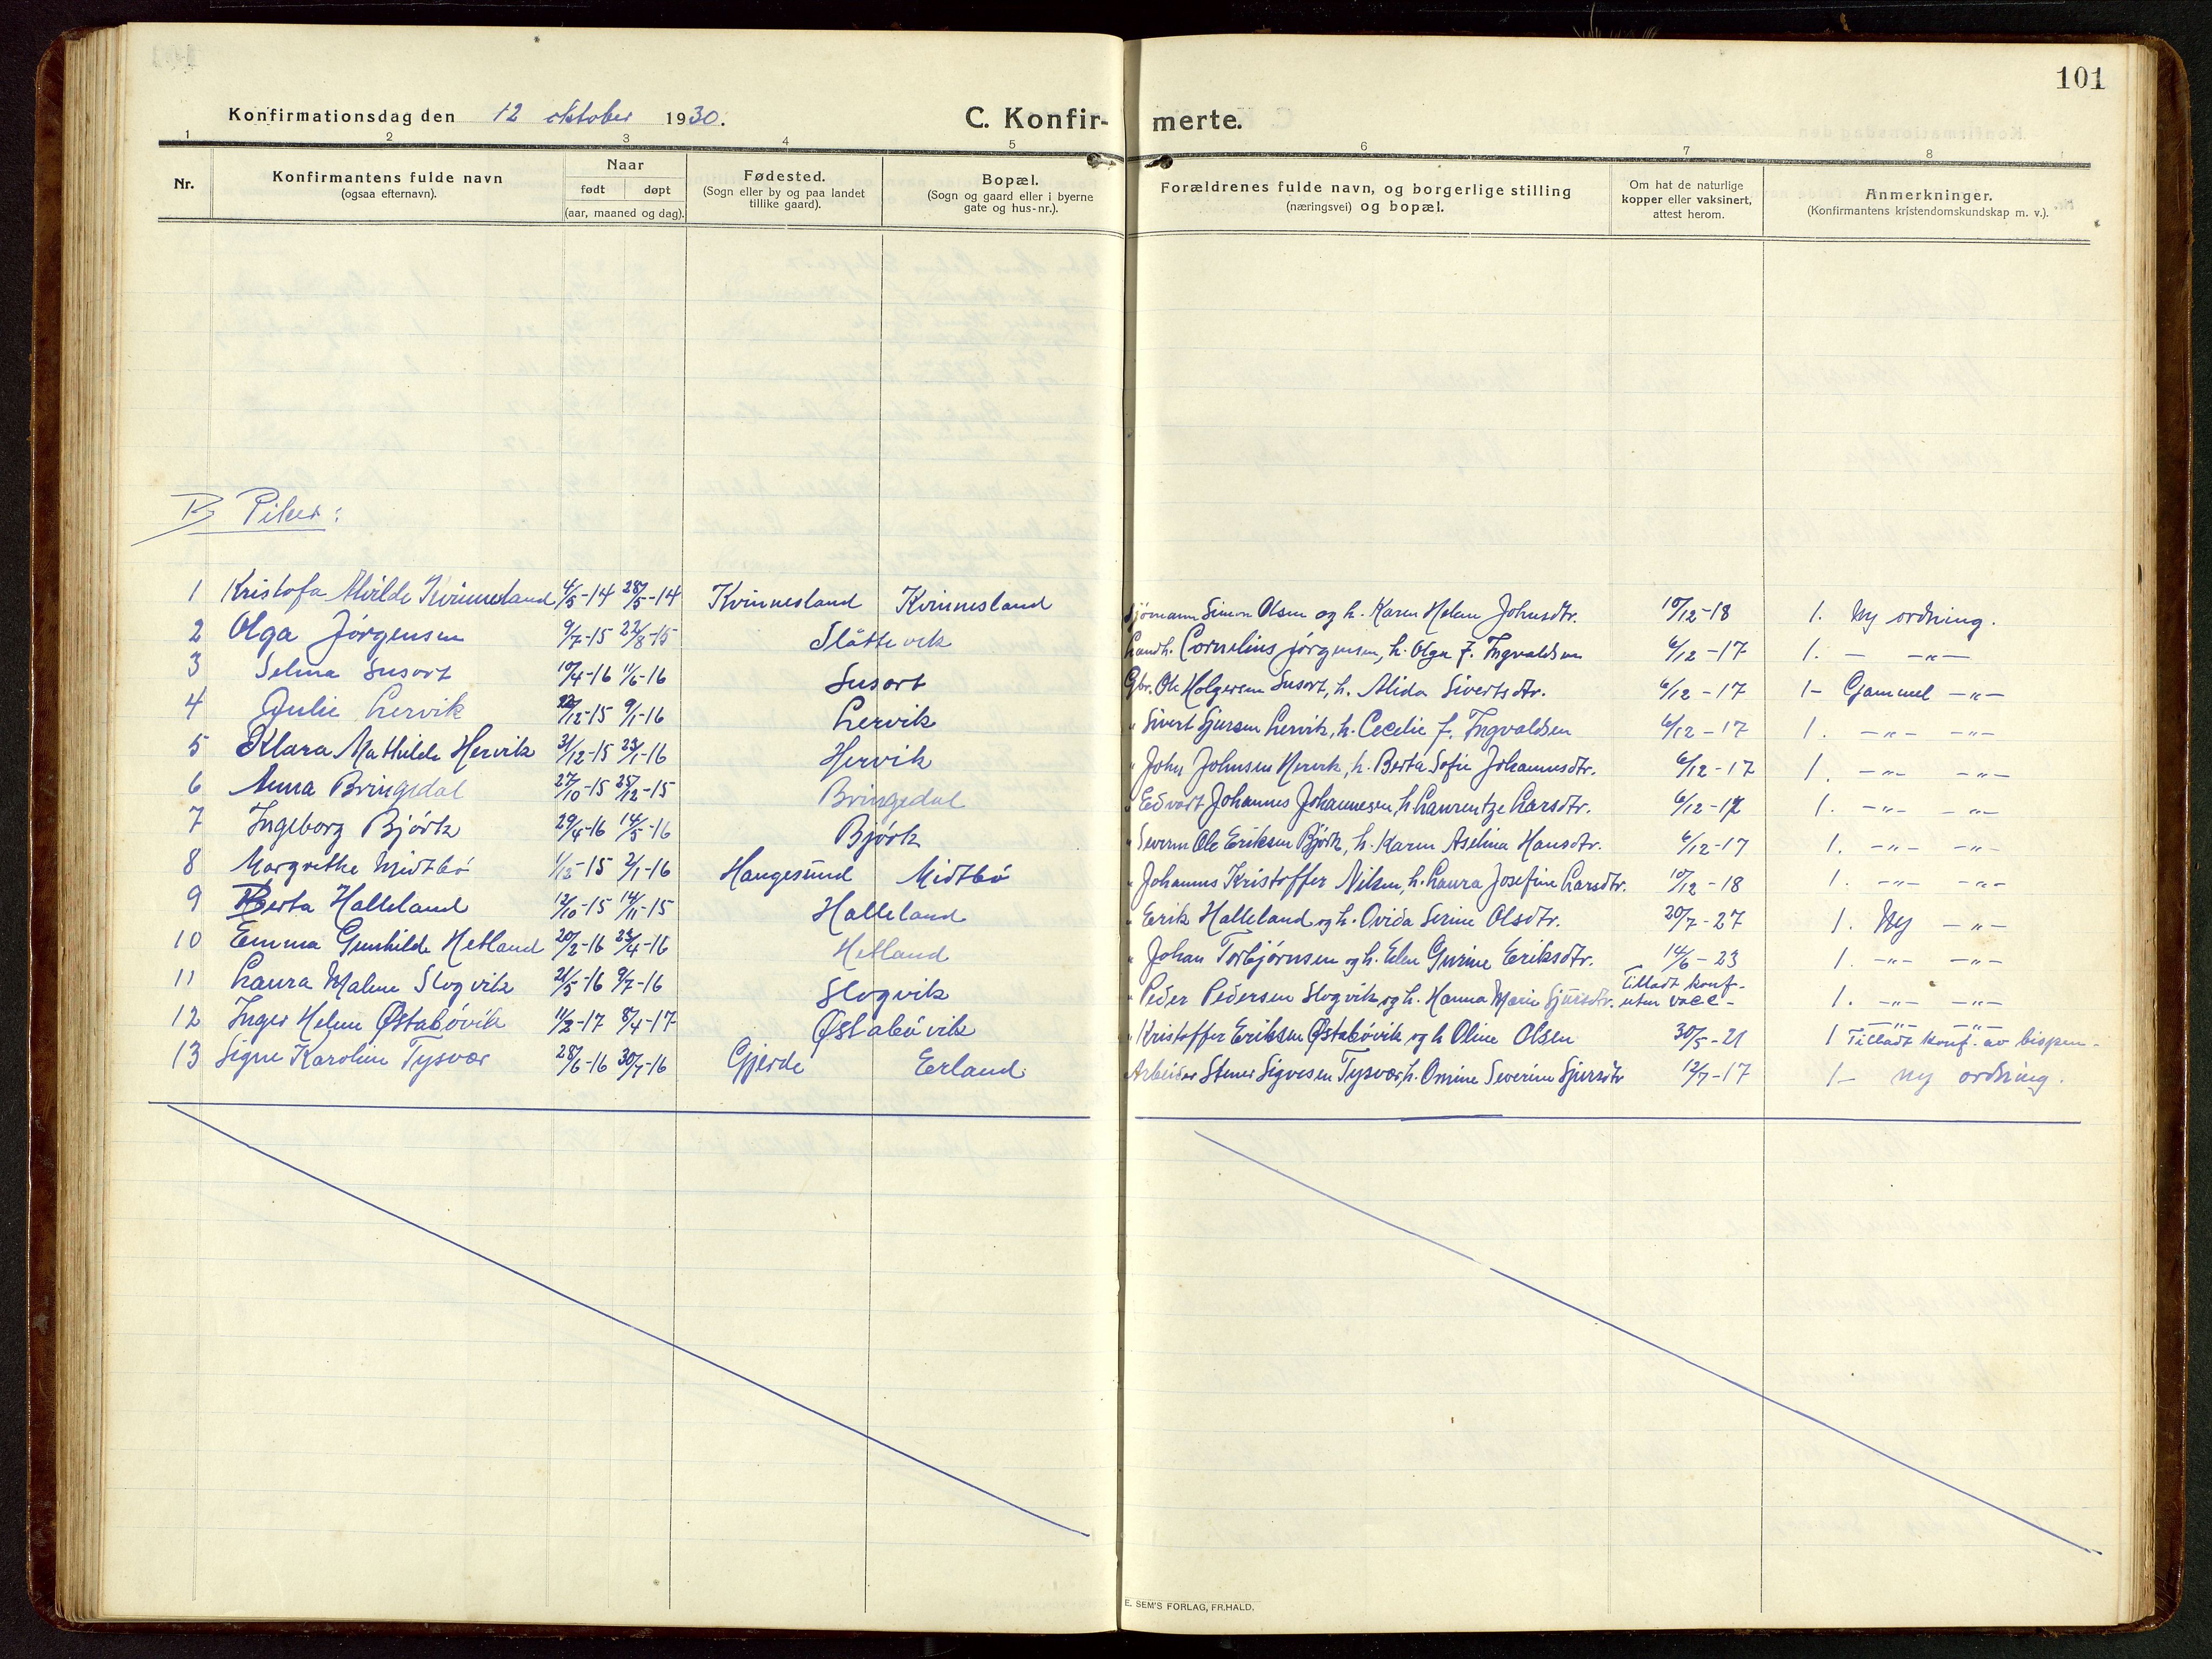 101
Konfirmationsdag den 12 oktober 1930.
C. Konfir- merte.
1 2 3 4 5 6 7 8
Nr.
Konfirmantens fulde navn
(ogsaa efternavn).
Naar
født døpt
(aar, maaned og dag).
Fødested.
(Sogn eller by og paa landet
tillike gaard).
Bopæl.
(Sogn og gaard eller i byerne
gate og hus-nr.).
Forældrenes fulde navn, og borgerlige stilling
(næringsvei) og bopæl.
Om hat de naturlige
kopper eller vaksinert,
attest herom.
Anmerkninger.
(Konfirmantens kristendomskundskap m. v.).
B Piker:
1 Kristofa Alvilde Kvinnesland 4/5-14 28/5-14 Kvinnesland Kvinnesland Sjømann Simon Olsen og h. Karen Helene Johnsdtr. 10/12-18 1. Ny ordning.
2 Olga Jørgensen 9/7-15 22/8-15 Slåttevik Landh. Cornelius Jørgensen, h. Olga f. Ingvaldsen 6/12-17 1. — —"—
3 Selma Susort 10/4-16 11/6-16 Susort Gbr. Ole Holgersen Susort, h. Alida Sivertsdtr. 6/12-17 1- Gammel —"—
4 Julie Lervik 22/12-15 9/1-16 Lervik " Sivert Sjursen Lervik, h. Cecelie f. Ingvaldsen 6/12-17 1. —"— —"—
5 Klara Mathilde Hervik 31/12-15 23/1-16 Hervik " John Johnsen Hervik, h. Berta Sofie Johannesdtr. 6/12-17 1. —"— —"—
6 Anna Bringedal 27/10-15 25/12-15 Bringedal " Edvart Johannes Johannesen, h Laurentze Larsdtr. 6/12-17 1. —"— —"—
7 Ingeborg Bjørk 29/4-16 14/5-16 Bjørk " Severin Ole Eriksen Bjørk, h. Karen Aselina Hansdtr. 6/12-17 1. —"— —"—
8 Margrethe Midtbø 1/12-15 2/1-16 Haugesund Midtbø " Johannes Kristoffer Nilsen, h. Laura Josefine Larsdtr. 10/12-18 1. —"— —"—
9 Berta Halleland 12/10-15 14/11-15 Halleland " Erik Halleland og h. Ovida Serine Olsdtr. 20/7-27 1. Ny —"—
10 Emma Gunhilde Hetland 20/2-16 23/4-16 Hetland " Johan Torbjørnsen og h. Elen Gurine Eriksdtr. 14/6-23 1. —"— —"—
11 Laura Malene Slogvik 21/5-16 9/7-16 Slogvik " Peder Pedersen Slogvik og h. Hanna Marie Sjursdtr. Tilladt konf- uten vacc- 1. —"— —"—
12 Inger Helene Østabøvik 11/2-17 8/4-17 Østabøvik " Kristoffer Eriksen Østabøvik og h Oline Olsen 30/5-21 1 —"— —"— Tilladt konf. av bispen-
13 Signe Karoline Tysvær 28/6-16 30/7-16 Gjerde Erland Arbeider Stener Sigvesen Tysvær, h. Omine Severine Sjursdtr 12/7-17 1- ny ordning.
E. SEM'S FORLAG, FR.HALD.